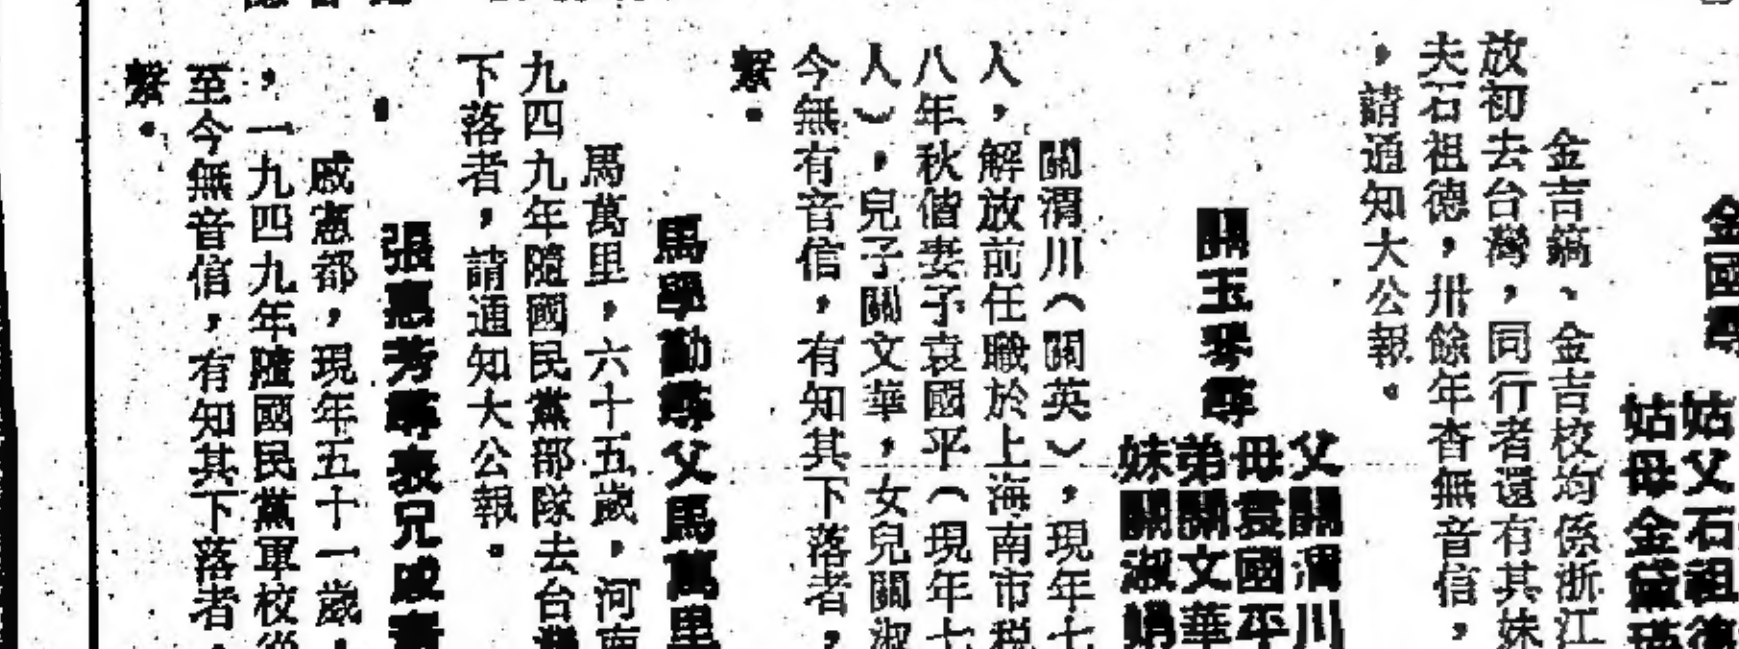 金國尋
姑父石祖德
姑母金盛瑛
金吉鎬、金吉校均係浙江
放初去台灣，同行者還有其妹
夫石祖德，卅餘年杳無音信，
，請通知大公報。
關玉琴尋
父關渭川
母袁國平
弟關文華
妹關淑娟
關渭川（關英），現年七
人，解放前任職於上海南市税
八年秋偕妻子袁國平（現年七
人），兒子關文華，女兒關淑
今無有音信，有知其下落者，
繫。
馬學勤尋父馬萬里
馬萬里，六十五歲，河南
九四九年隨國民黨部隊去台灣
下落者，請通知大公報。
。
張惠芳尋表兄戚憲
戚憲都，現年五十一歲，
，一九四九年隨國民黨軍校從
至今無音信，有知其下落者，
繫。